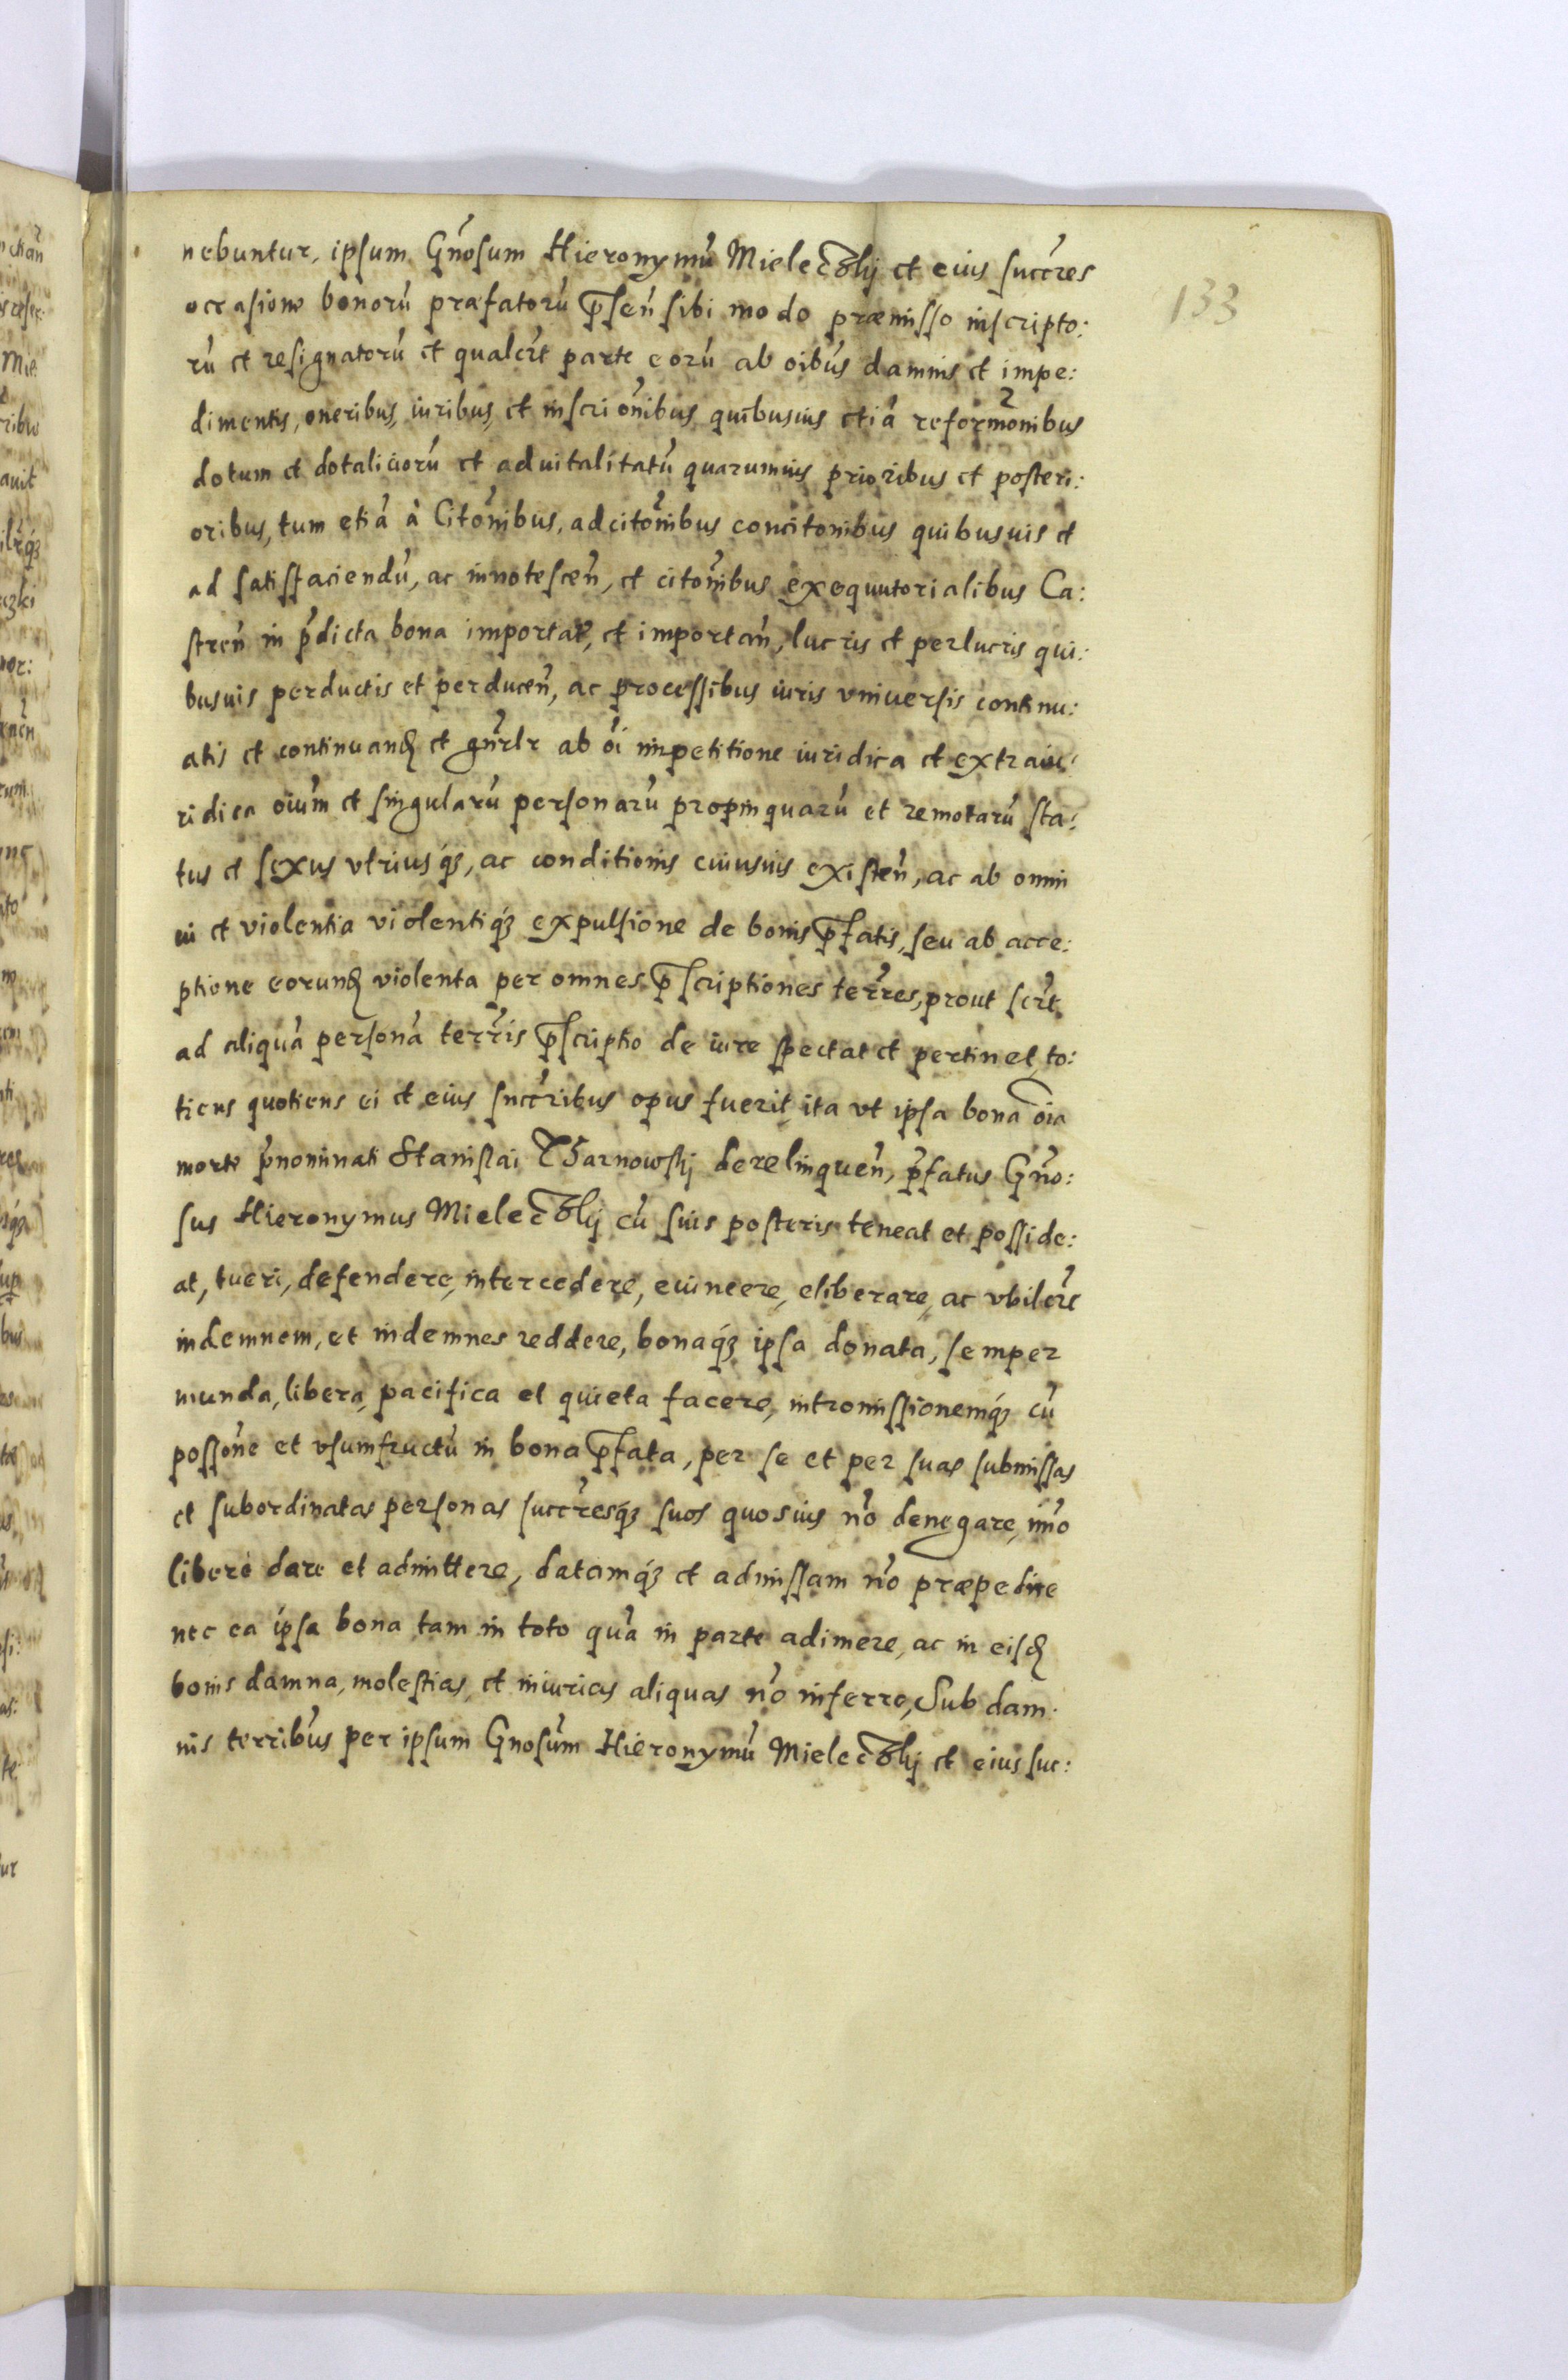 nebuntur, ipsum Gñosum Hieronymũ Mielecski et eius succres
occasione bonorũ præfatorũ p̃sen̄ sibi modo præmisso inscripto:
133
rũ et resignatorũ et qualcrt parte eorũ ab oibus damnis et impe:
dimentis, oneribus, iuribus, et inscriõnibus quibusuis etiã reformõnibus
dotum et dotaliciorũ et aduitalitatũ quarumuis prioribus et posteri:
oribus, tum etiã à Citõnibus, adcitõnibus concitonibus quibusuis et
ad satisfaciendũ, ac innotescen̄, et citõnibus exequutorialibus Ca:
stren̄ in p̃dicta bona importat, et importan̄, lucris et perlucris qui:
busuis perductis et perducen̄, ac processibus iuris vniuersis continu:
atis et continuand et gn̄rlr ab oĩ impetitione iuridica et extraiu:
ridica oiũm et singularũ personarũ propinquarũ et remotarũ sta:
tus et sexus vtriusq;, ac conditionis cuiusuis existen̄, ac ab omni
ui et violentia violentiq; expulsione de bonis p̃fatis, seu ab acce:
ptione eorund violenta per omnes p̃scriptiones terrres, prout scrt
ad aliquã personã terrris p̃scriptio de iure spectat et pertinet, to:
tiens quotiens ei et eius succribus opus fuerit, ita vt ipsa bona oĩa
morte p̃nominati Stanislai Tharnowskj derelinquen̄, p̃fatus Gñо:
sus Hieronymus Mielecski cũ suis posteris teneat et posside:
at, tueri, defendere, intercedere, euincere, eliberare, ac vbilcrt
indemnem, et indemnes reddere, bonaq; ipsa donata, semper
munda, libera, pacifica et quieta facere, intromissionemq; cũ
possõne et vsumfructũ in bona p̃fata, per se et per suas submissas
et subordinatas personas succresq; suos quosuis nõ denegare, imõ
liberè dare et admittere, datamq; et admissam nõ præpedire
nec ea ipsa bona tam in toto quã in parte adimere, ac in eisd
bonis damna, molestias, et iniurias aliquas nõ inferre, Sub dam:
nis terribus per ipsum Gnosũm Hieronymũ Mielecski et eius suc: